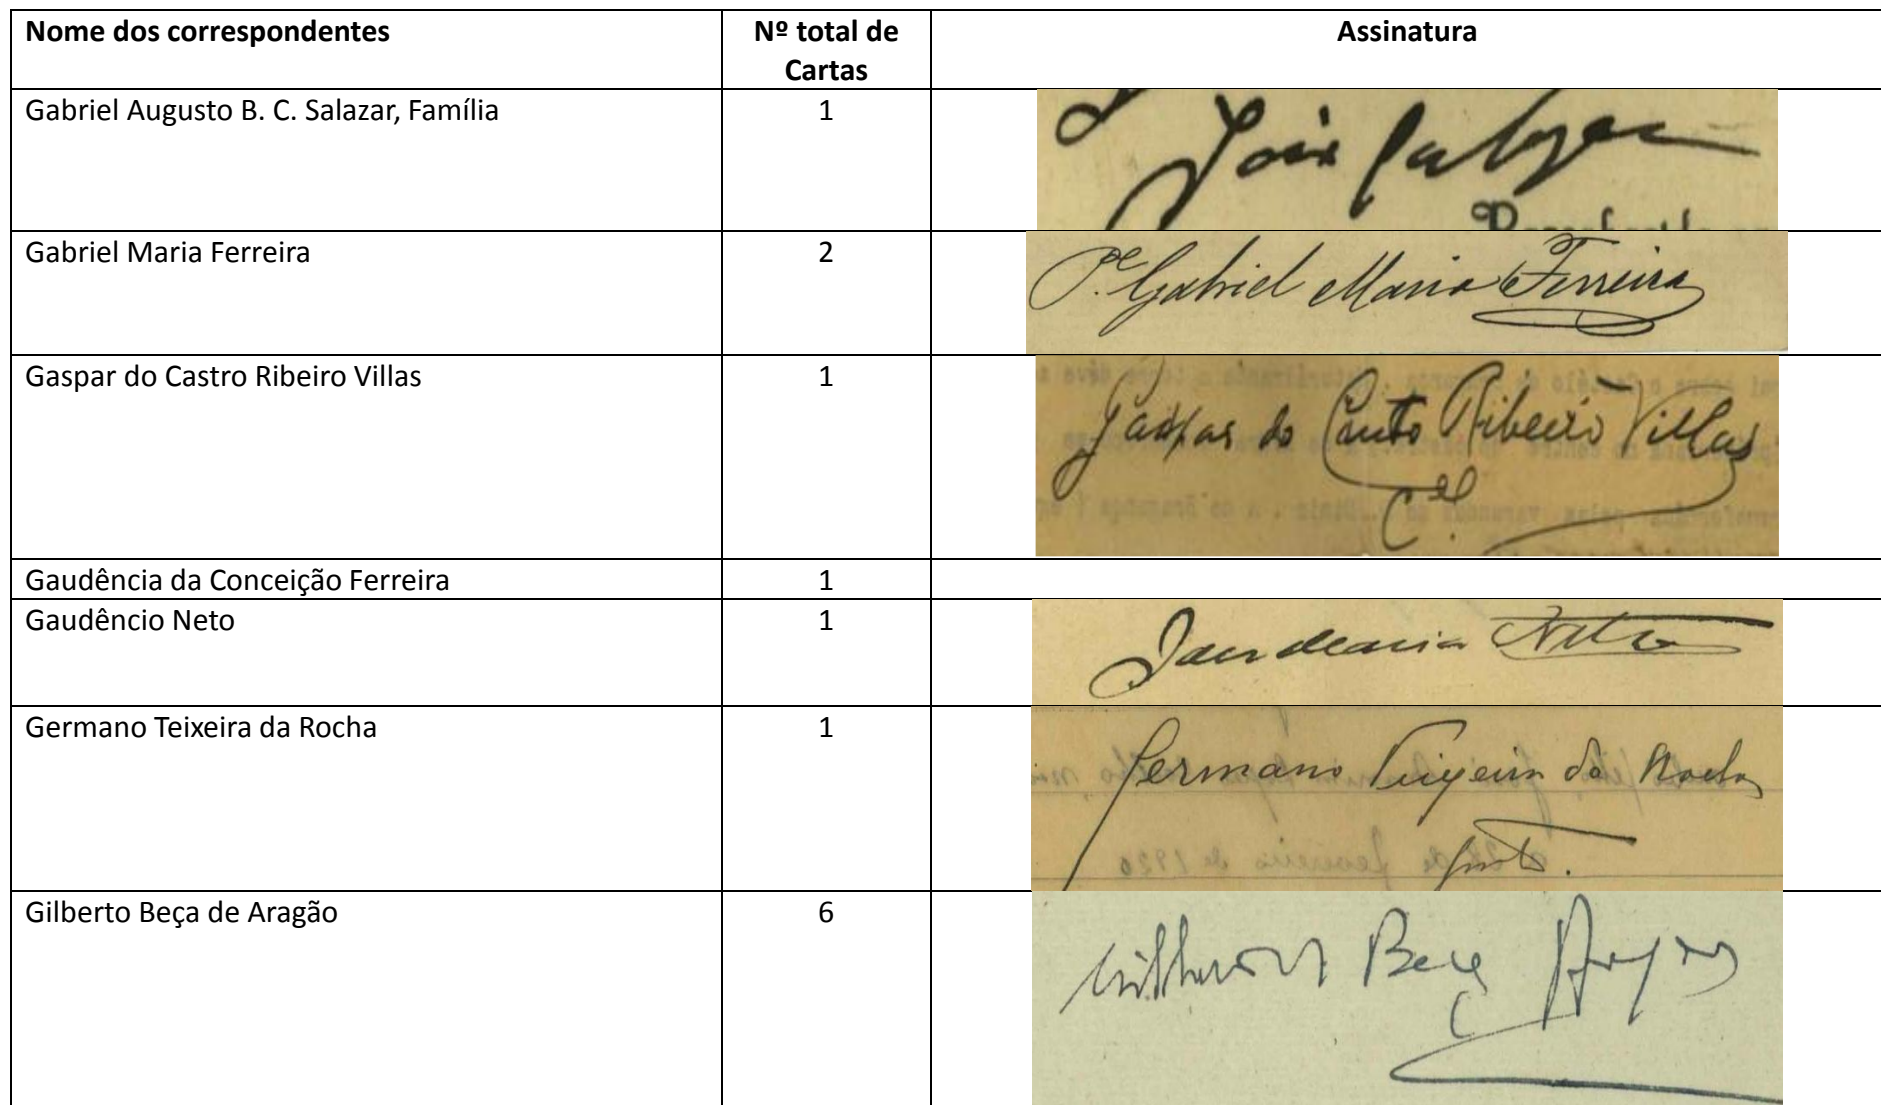 Nome dos correspondentes
Nº total de
Cartas
Assinatura
Gabriel Augusto B. C. Salazar, Família
1
José Salazar
Gabriel Maria Ferreira
2
P.e Gabriel Maria Ferreira
Gaspar do Castro Ribeiro Villas
1
Gaspar do Couto Ribeiro Villas
Cel
Gaudência da Conceição Ferreira
1
Gaudêncio Neto
1
Gaudencio Neto
Germano Teixeira da Rocha
1
Germano Teixeira da Rocha
Gilberto Beça de Aragão
6
Beça Aragão